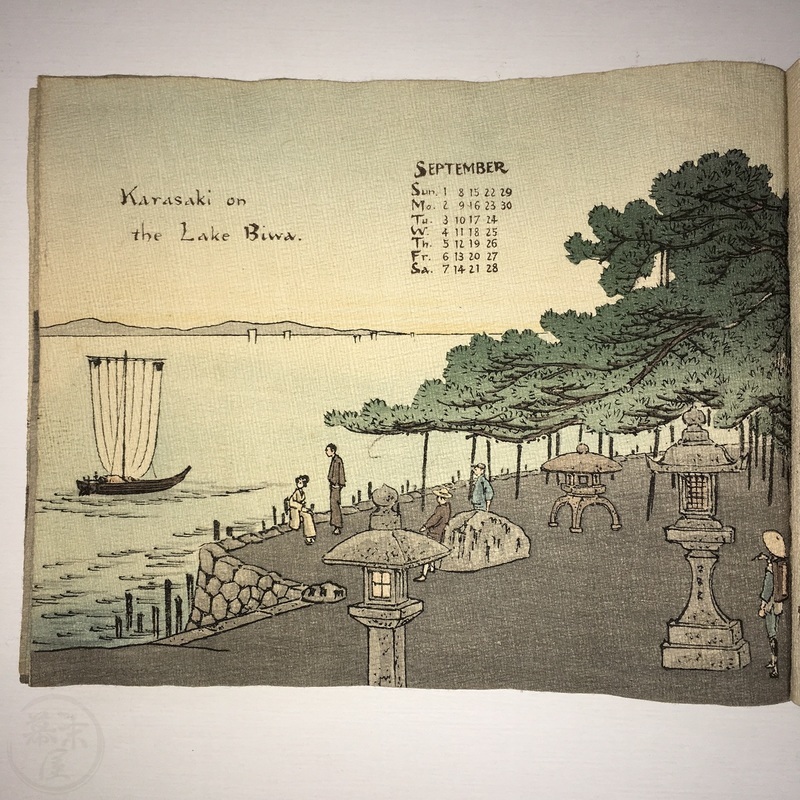 Karasaki on
the Lake Biwa.
SEPTEMBER
Sun. 1 8 15 22 29
Mo. 2 9 16 23 30
Tu. 3 10 17 24
W. 4 11 18 25
Th. 5 12 19 26
Fr. 6 13 20 27
Sa. 7 14 21 28
幕末
屋